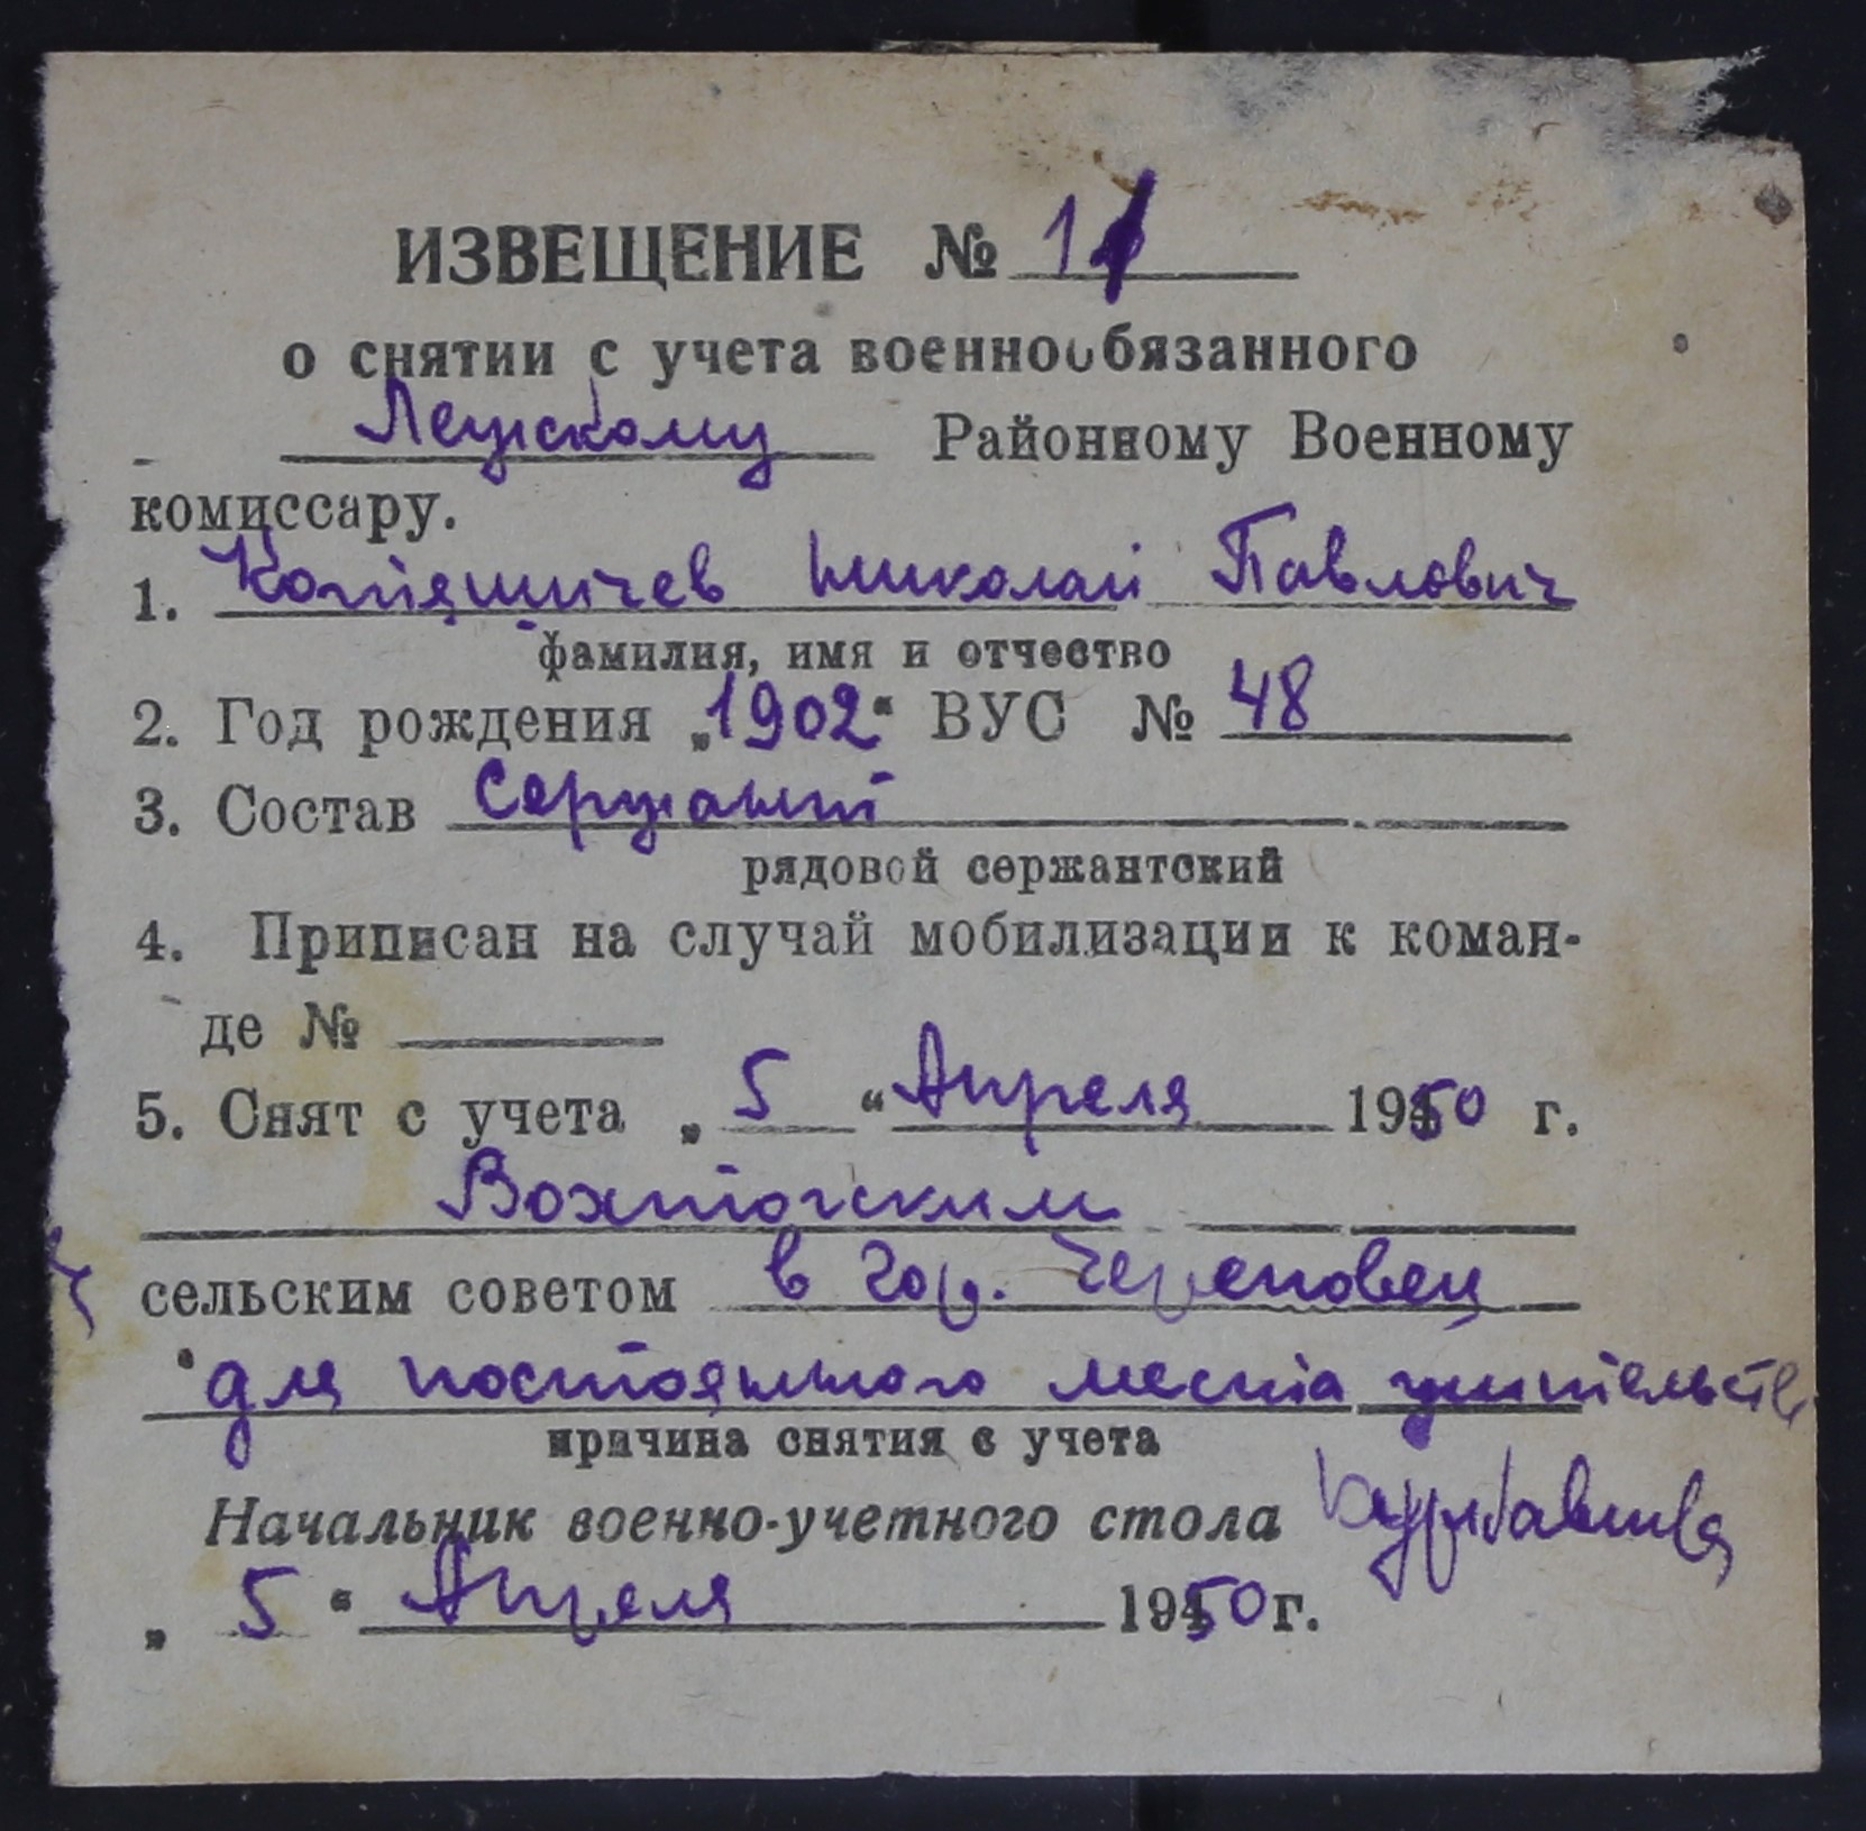 ИЗВЕЩЕНИЕ № 11
о снятии с учета военнообязанного
Лежскому Районному Военному
комиссару.
1. Николай Павлович
фамилия, имя и отчество
2. Год рождения „1902“ ВУС № 48
3. Состав Сержант
рядовой сержантский
4. Приписан на случай мобилизации к коман-
де №
5. Снят с учета „5“ Апреля 1950 г.
Вохтогским
сельским советом в гор. Череповец
для постоянного места жительств
причина снятия с учета
Начальник военно-учетного стола
„5“ Апреля 1950 г.